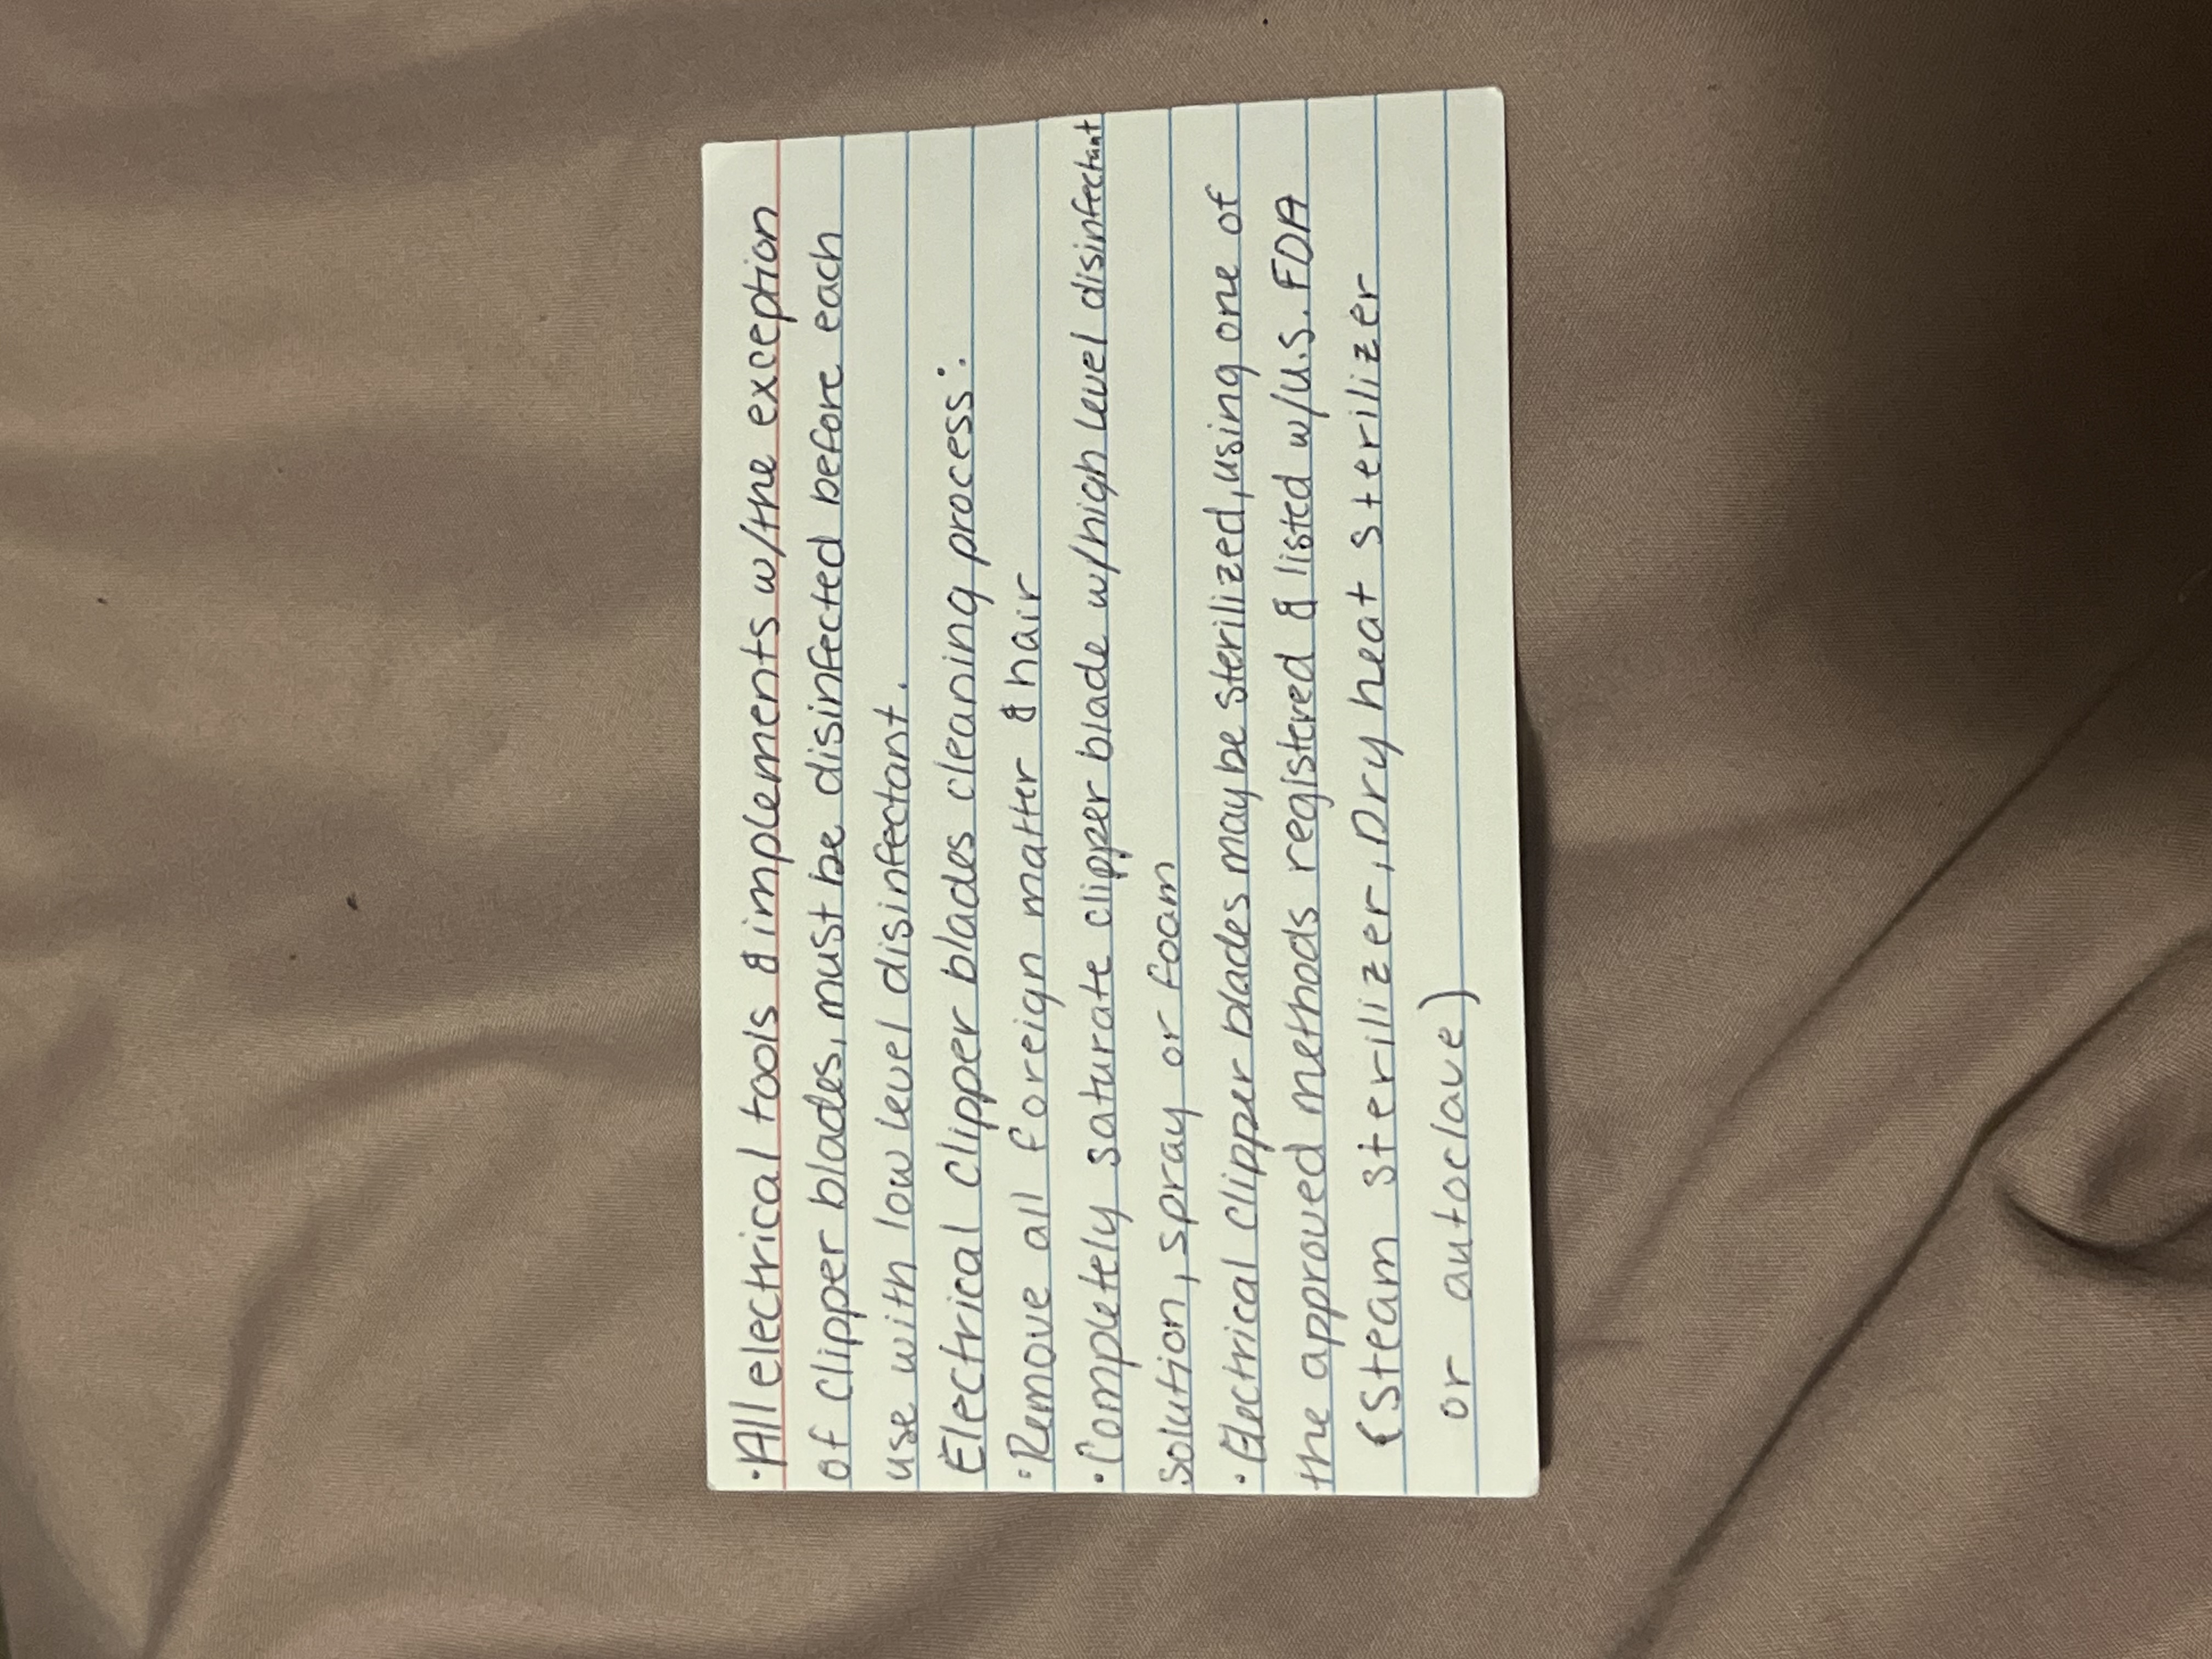 ·All electrical tools & implements w/the exception
of clipper blades, must be disinfected before each
use with low level disinfectant.
Electrical clipper blades cleaning process:
·Remove all foreign matter & hair
·Completely saturate clipper blade w/high level disinfectant
solution, spray or foam
·Electrical clipper blades may be sterilized, using one of
the approved methods registered & listed w/U.S. FDA
(Steam sterilizer, Dry heat sterilizer
or autoclave)